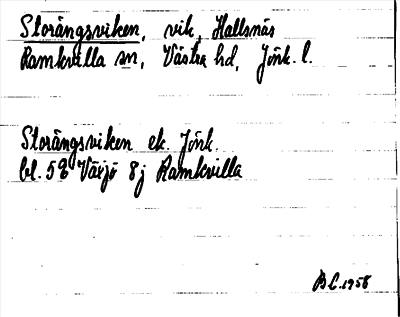 Storängsviken, vik, Hallsnäs
Ramkvilla sn, Västra hd, Jönk. l.
Storängsviken ek. Jönk.
bl. 5E Växjö 8j Ramkvilla
B C. 1958